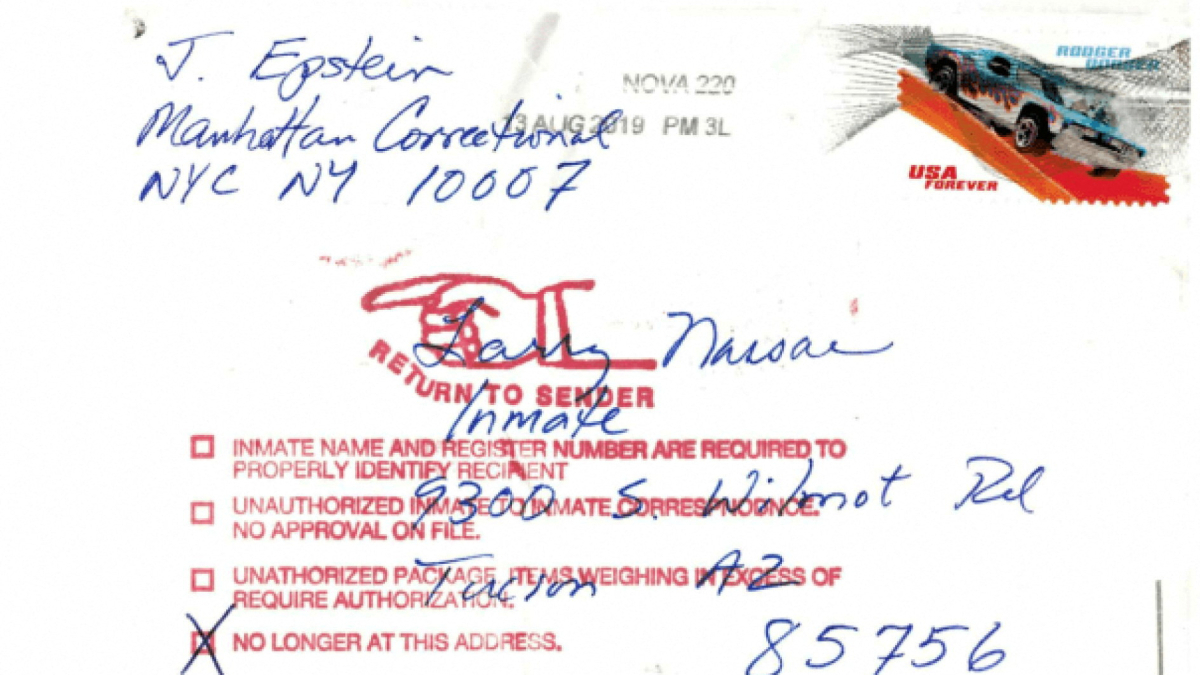 J. Epstein
Manhattan Correctional
NYC NY 10007
NOVA 220
13 AUG 2019 PM 3L
RODGER
DODGER
USA
FOREVER
Larry Nassar
Inmate
9300 S. Wilmot Rd
Tucson AZ
85756
RETURN TO SENDER
INMATE NAME AND REGISTER NUMBER ARE REQUIRED TO
PROPERLY IDENTIFY RECIPIENT
UNAUTHORIZED INMATE TO INMATE CORRESPONDNCE.
NO APPROVAL ON FILE.
UNATHORIZED PACKAGE, ITEMS WEIGHING IN EXCESS OF
REQUIRE AUTHORIZATION.
X NO LONGER AT THIS ADDRESS.